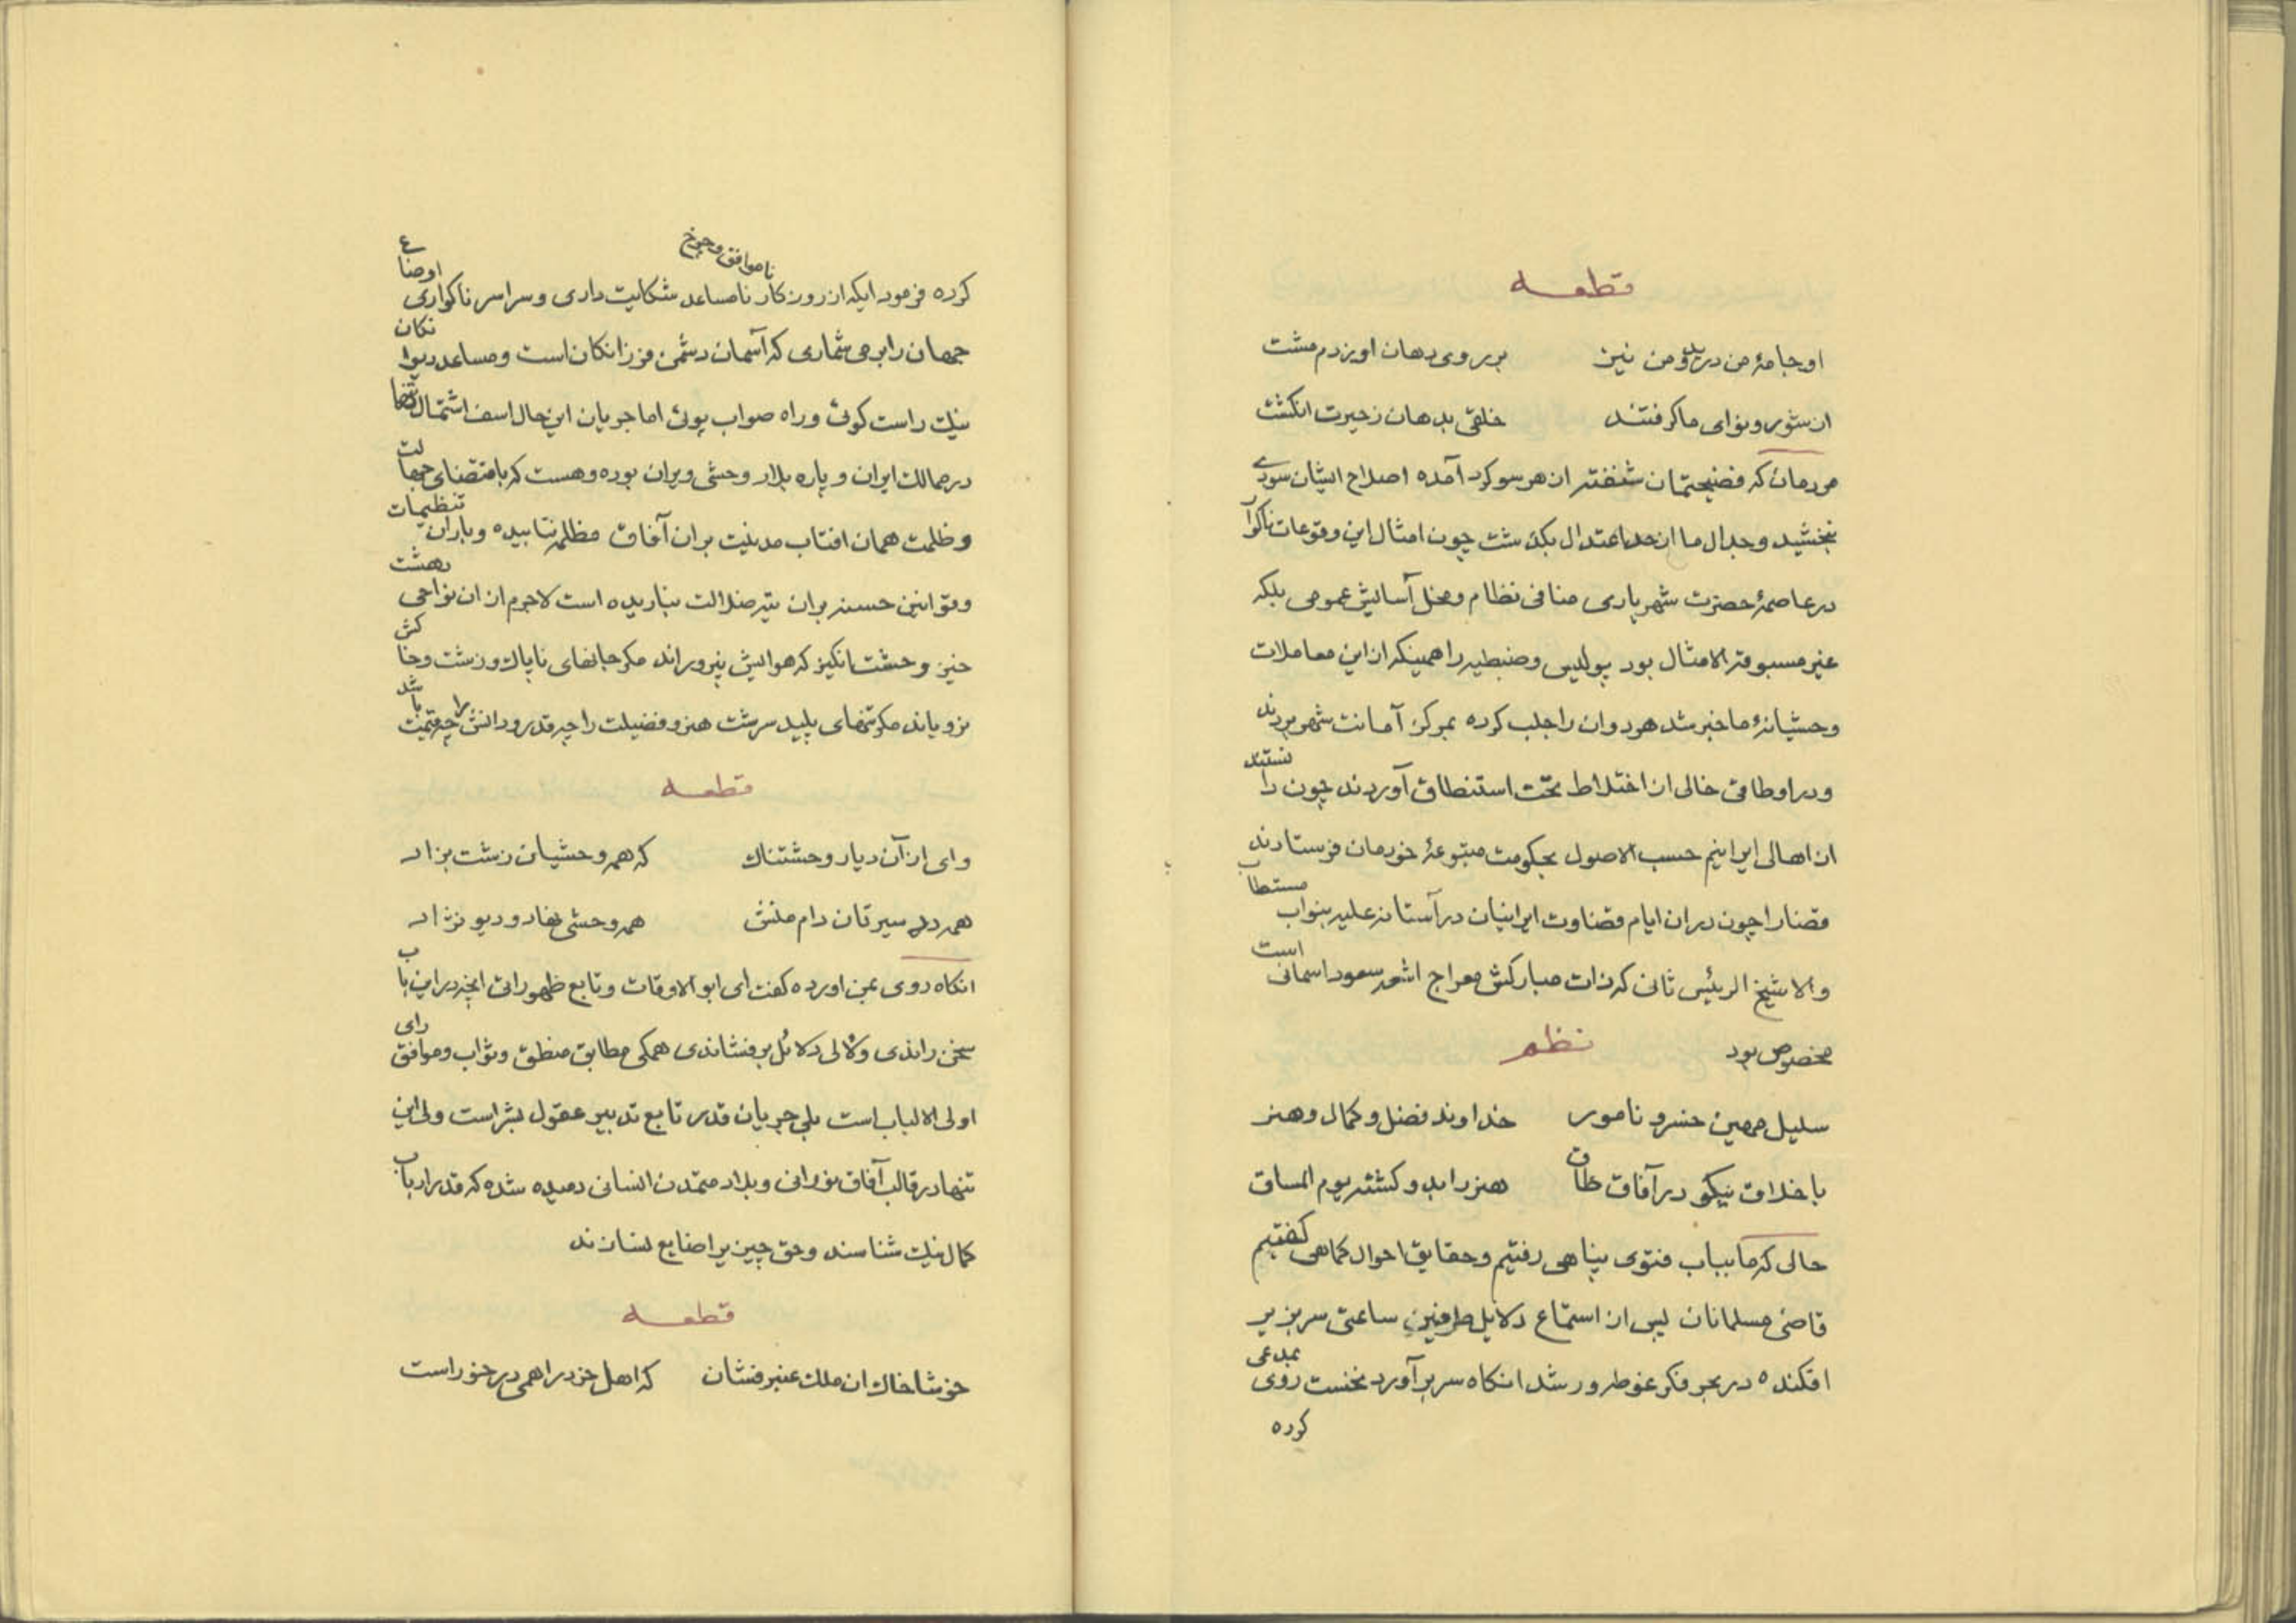 قطعه
او جامهٔ من درید و من نیز    بر روی دهان او بزدم مشت
از شور و نوای ما گرفتند    خلقی بدهان ز حیرت انگشت
مردمان که فضیحتمان شنفته از هر سو گرد آمده اصلاح ایشان سودی
نبخشید و جدال ما از حد اعتدال بگذشت چون امثال این وقوعات ناگوا
در عاصمهٔ حضرت شهریاری منافی نظام و مخل آسایش عمومی بلکه
غیر مسبوقة الامثال بود پولیس و ضبطیه را همینکه از این معاملات
وحشیانهٔ ما خبر شد هر دوان را جلب کرده بمرکز امانت شهر بردند
و در اوطاقی خالی از اختلاط تحت استنطاق آوردند چون دانستند
از اهالی ایرانیم حسب الاصول بحکومت متبوعهٔ خودمان فرستادند
قضا را چون در ان ایام قضاوت ایرانیان در آستانه علیه بنواب مستطاب
والا شیخ الرئیس ثانی که ذات مبارکش معراج اشعه سعود اسمانی است
مخصوص بود    نظم
سلیل مهین خسرو نامور    خداوند فضل و کمال و هنر
باخلاق نیکو در آفاق طاق    هنر را بدو گشته یوم المساق
حالی که ما بباب فتوی پناهی رفتیم و حقایق احوال کماهی گفتیم
قاضی مسلمانان پس از استماع دلایل طرفین ساعتی سر بزیر
افکنده در بحر فکر غوطه‌ور شد انگاه سر بر آورد نخست روی بمدعی
کرده
کرده فرمود ایکه از روزکار نامساعد ناموافق و چرخ شکایت داری و سراسر ناکواری اوضاع
جهان را بر می شماری که آسمان دشمن فرزانکان است و مساعد دیوانکان
نیک راست کوئی و راه صواب پوئی اما جریان این حال اسف اشتمال تنها
در ممالک ایران و پاره بلاد وحشی ویران بوده و هست که باقتضای جهالت
و ظلمت همان افتاب مدنیت بر ان آفاق مظلمه نتابیده و باران تنظیمات
و قوانین حسنه بران تیه ضلالت نباریده است لاجرم از ان نواحی دهشت
خیز و وحشت انکیز که هوایش نپروراند مکر جانهای ناپاک و زشت و خاکش
نرویاند مکر تنهای پلید سرشت هنر و فضیلت را چه قدر و دانش را چه قیمت باشد
قطعه
وای از آن دیار وحشتناک    که همه وحشیان زشت بزاد
همه دد سیرتان دام منش    همه وحشی نهاد و دیو نژاد
انگاه روی بمن اورده گفت ای ابو الاوقات و تابع ظهورات انچه در این باب
سخن راندی و لالی دلائل بر فشاندی همکی مطابق منطق و ثواب و موافق رای
اولی الالباب است بلی جریان قدر تابع تدبیر عقول بشر است ولی این
تنها در قالب آفاق نورانی و بلاد متمدن انسانی دمیده شده که قدر ارباب
کمال نیک شناسند و حق چیز بر اضایع نسازند
قطعه
خوشا خاک ان ملک عنبر فشان    که اهل خرد را همی در خور است